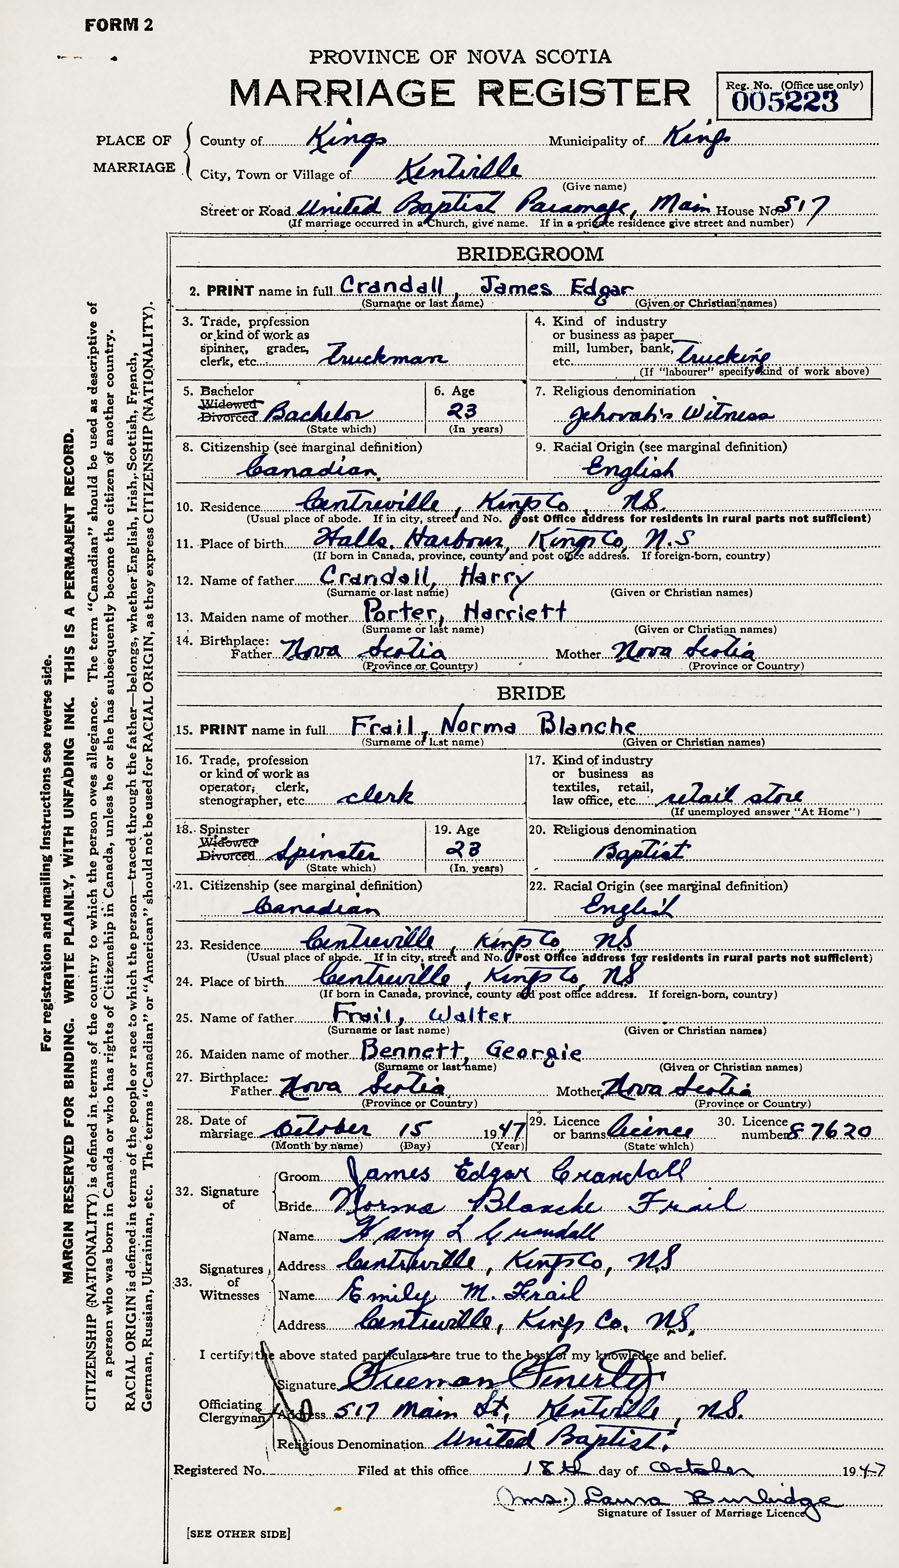 FORM 2
PROVINCE OF NOVA SCOTIA
MARRIAGE REGISTER
Reg. No. (Office use only)
005223
PLACE OF MARRIAGE
County of Kings Municipality of Kings
City, Town or Village of Kentville
(Give name)
Street or Road United Baptist Parsonage, Main House No. 517
(If marriage occurred in a Church, give name. If in a private residence give street and number)
BRIDEGROOM
2. PRINT name in full Crandall, James Edgar
(Surname or last name) (Given or Christian names)
3. Trade, profession or kind of work as spinner, grades, clerk, etc. Truckman
4. Kind of industry or business as paper mill, lumber, bank, etc. Trucking
(If "labourer" specify kind of work above)
5. Bachelor Widowed Divorced Bachelor
(State which)
6. Age 23
(In years)
7. Religious denomination
Jehovah's Witness
8. Citizenship (see marginal definition)
Canadian
9. Racial Origin (see marginal definition)
English
10. Residence Centreville, Kings Co, NS.
(Usual place of abode. If in city, street and No. Post Office address for residents in rural parts not sufficient)
11. Place of birth Halls Harbour, Kings Co, N.S
(If born in Canada, province, county and post office address. If foreign-born, country)
12. Name of father Crandall, Harry
(Surname or last name) (Given or Christian names)
13. Maiden name of mother Porter, Harriett
(Surname or last name) (Given or Christian names)
14. Birthplace: Father Nova Scotia Mother Nova Scotia
(Province or Country) (Province or Country)
BRIDE
15. PRINT name in full Frail, Norma Blanche
(Surname or last name) (Given or Christian names)
16. Trade, profession or kind of work as operator, clerk, stenographer, etc clerk
17. Kind of industry or business as textiles, retail, law office, etc retail store
(If unemployed answer "At Home")
18. Spinster Widowed Divorced Spinster
(State which)
19. Age 23
(In years)
20. Religious denomination
Baptist
21. Citizenship (see marginal definition)
Canadian
22. Racial Origin (see marginal definition)
English
23. Residence Centreville, Kings Co, NS
(Usual place of abode. If in city, street and No. Post Office address for residents in rural parts not sufficient)
24. Place of birth Centreville, Kings Co, NS
(If born in Canada, province, county and post office address. If foreign-born, country)
25. Name of father Frail, Walter
(Surname or last name) (Given or Christian names)
26. Maiden name of mother Bennett, Georgie
(Surname or last name) (Given or Christian names)
27. Birthplace: Father Nova Scotia Mother Nova Scotia
(Province or Country) (Province or Country)
28. Date of marriage October 15 1947
(Month by name) (Day) (Year)
29. Licence or banns licence
(State which)
30. Licence number 87620
32. Signature of
Groom James Edgar Crandall
Bride Norma Blanche Frail
33. Signatures of Witnesses
Name Harry L Crandall
Address Centreville, Kings Co, NS
Name Emily M. Frail
Address Centreville, Kings Co. NS.
I certify the above stated particulars are true to the best of my knowledge and belief.
Officiating Clergyman
Signature Freeman Fenerty
Address 517 Main St, Kentville, NS.
Religious Denomination United Baptist.
Registered No. Filed at this office 18th day of October 1947
(Mrs.) Laura Burbidge
Signature of Issuer of Marriage Licence
[SEE OTHER SIDE]
For registration and mailing instructions see reverse side.
MARGIN RESERVED FOR BINDING. WRITE PLAINLY, WITH UNFADING INK. THIS IS A PERMANENT RECORD.
CITIZENSHIP (NATIONALITY) is defined in terms of the country to which the person owes allegiance. The term "Canadian" should be used as descriptive of
a person who was born in Canada or who has rights of Citizenship in Canada, unless he or she has subsequently become the citizen of another country.
RACIAL ORIGIN is defined in terms of the people or race to which the person—traced through the father—belongs, whether English, Irish, Scottish, French,
German, Russian, Ukrainian, etc. The terms "Canadian" or "American" should not be used for RACIAL ORIGIN, as they express CITIZENSHIP (NATIONALITY).